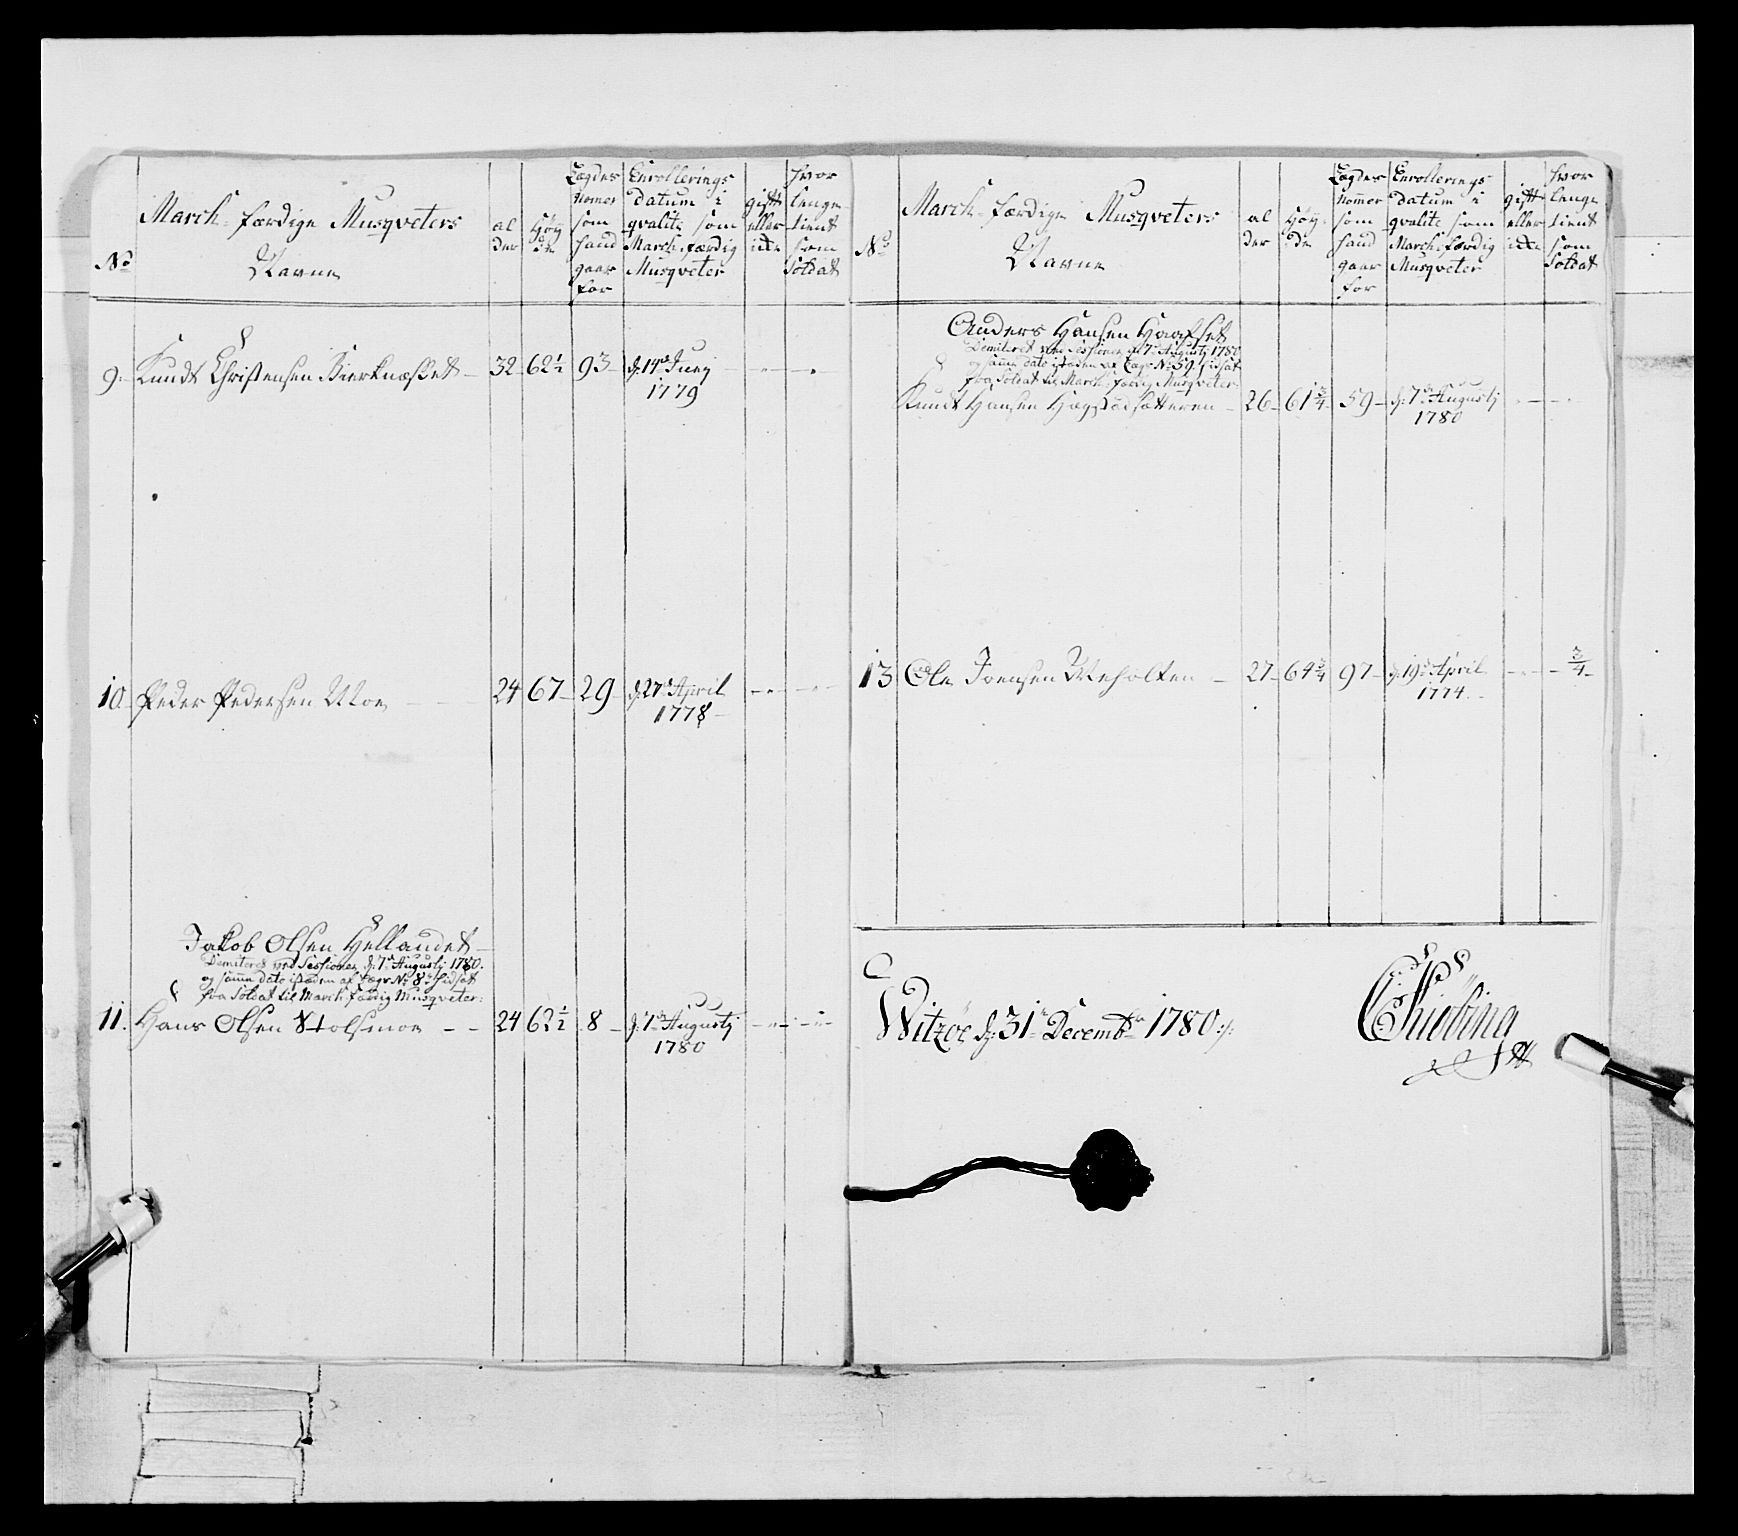 No
March-færdige Musqveters
Navne
al
der
Høy
de
Lægdes
Nomer
som
hand
gaar
for
Enrollerings
datum i
qvalite som
March-færdig
Musqveter
gift
eller
icke
hvor
lenge
tient
som
Soldat
9. Knudt Christensen Bierknæsset 32 62½ 93 d: 14de Junij
1779
10 Peder Pedersen Moe 24 67 29 d: 27de April
1778
Jakob Olsen Hellandet
Demiteret ved Sessionen d: 7de Augustj 1780.
og samme dato isteden af Lægs No 8 hidsat
fra Soldat til March-færdig Musqveter:
11. Hans Olsen Stolsmoe 24 62½ 8 d: 7de Augustj
1780
No
March-færdige Musqveters
Navne
al
der
Høy
de
Lægdes
Nomer
som
hand
gaar
for
Enrollerings
datum i
qvalite som
March-færdig
Musqveter
gift
eller
icke
hvor
lenge
tient
som
Soldat
Anders Hansen
Demiteret ved Sessionen d: 7de Augustj 1780
og samme dato isteden af Lægs No 59 hidsat
fra Soldat til March-færdig Musqveter
Knudt Hansen 26 61¾ 59 d: 7de Augustj
1780
13 Ole Ivensen Weholten 27 64¾ 97 d: 19de April ¾
1774
Witzöe d: 31te Decembr 1780